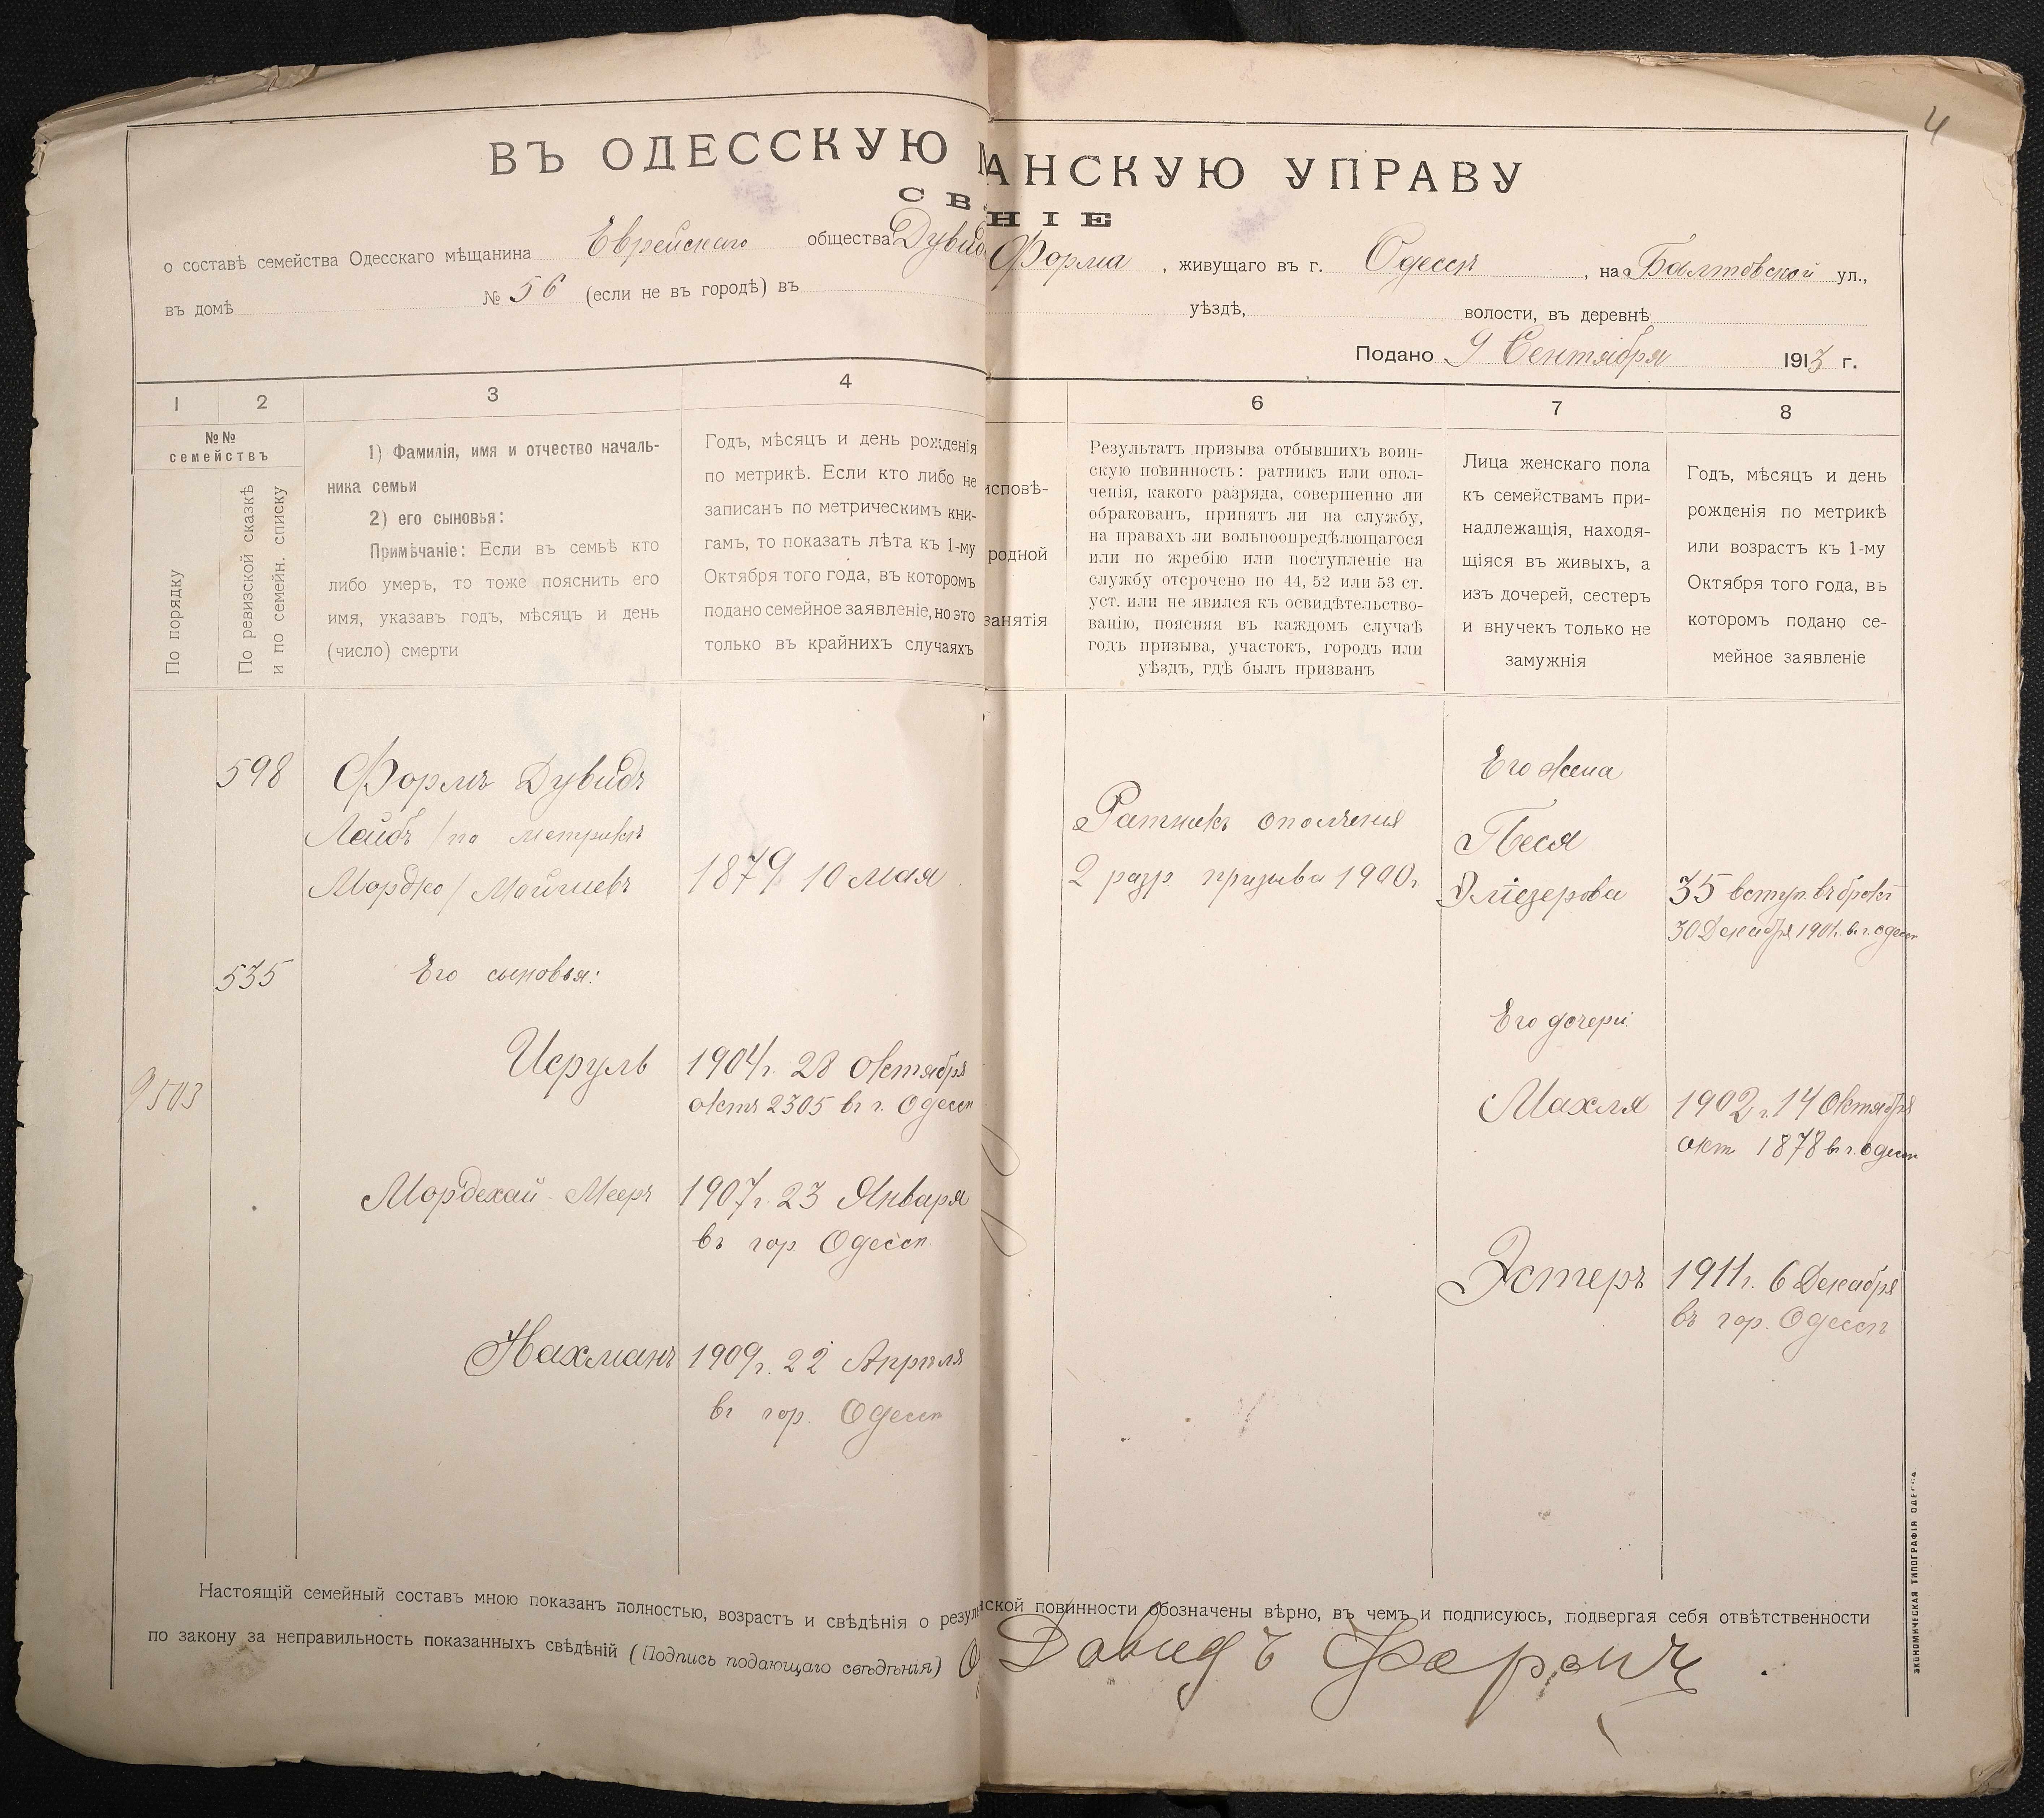 4
ВЪ ОДЕССКУЮ АНСКУЮ УПРАВУ
СВ НІЕ
о составѣ семейства Одесскаго мѣщанина Еврейскаго общества Дувид Форма, живущаго въ г. Одессѣ, на Балтовской ул.,
въ домѣ № 56 (если не въ городѣ) въ уѣздѣ, волости, въ деревнѣ
Подано 9 Сентября 1913 г.
1 2 3 4 6 7 8
№№ семействъ
По порядку
По ревизской сказкѣ
и по семейн. списку
1) Фамилія, имя и отчество началь-
ника семьи
2) его сыновья:
Примѣчаніе: Если въ семьѣ кто
либо умеръ, то тоже пояснить его
имя, указавъ годъ, мѣсяцъ и день
(число) смерти
Годъ, мѣсяцъ и день рожденія
по метрикѣ. Если кто либо не
записанъ по метрическимъ кни-
гамъ, то показать лѣта къ 1-му
Октября того года, въ которомъ
подано семейное заявленіе, но это
только въ крайнихъ случаяхъ
исповѣ-
родной
занятія
Результатъ призыва отбывшихъ воин-
скую повинность: ратникъ или опол-
ченія, какого разряда, совершенно ли
обракованъ, принятъ ли на службу,
на правахъ ли вольноопредѣлющагося
или по жребію или поступленіе на
службу отсрочено по 44, 52 или 53 ст.
уст. или не явился къ освидѣтельство-
ванію, поясняя въ каждомъ случаѣ
годъ призыва, участокъ, городъ или
уѣздъ, гдѣ былъ призванъ
Лица женскаго пола
къ семействамъ при-
надлежащія, находя-
щіяся въ живыхъ, а
изъ дочерей, сестеръ
и внучекъ только не
замужнія
Годъ, мѣсяцъ и день
рожденія по метрикѣ
или возрастъ къ 1-му
Октября того года, въ
которомъ подано се-
мейное заявленіе
598 Формъ Дувидъ
Лейбъ /по метрикѣ
Мордко/ Мойшевъ 1879 10 мая
Ратникъ ополченія
2 разр. призыва 1900г.
Его жена
Песя
Эліезерова 35 вступ. въ бракъ
30 Декабря 1901г. въ г. Одессѣ
535 Его сыновья:
Его дочери:
9503
Исруль 1904г. 28 Октября
актъ 2305 въ г. Одессѣ
Махля 1902г. 14 Октября
акт 1878 въ г. Одессѣ
Мордехай-Мееръ 1907г. 23 Января
въ гор. Одессѣ
Эстеръ 1911г. 6 Декабря
въ гор. Одессѣ
Нахманъ 1909г. 22 Апрѣля
въ гор. Одессѣ
Настоящій семейный составъ мною показанъ полностью, возрастъ и свѣдѣнія о резуль нской повинности обозначены вѣрно, въ чемъ и подписуюсь, подвергая себя отвѣтственности
по закону за неправильность показанныхъ свѣдѣній (Подпись подающаго свѣдѣнія) Давидъ Формъ.
ЭКОНОМИЧЕСКАЯ ТИПОГРАФІЯ ОДЕССА